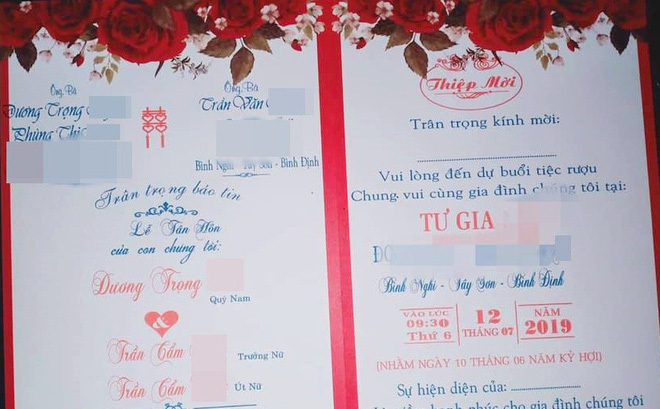 Ông Bà
Dương Trọng
Phùng Thị
Ông Bà
Trần Văn
Bình Nghi - Tây Sơn - Bình Định
Trân trọng báo tin
Lễ Tân Hôn
của con chúng tôi:
Dương Trọng
Quý Nam
Trần Cẩm
Trưởng Nữ
Trần Cẩm
Út Nữ
Thiệp Mời
Trân trọng kính mời:
Vui lòng đến dự buổi tiệc rượu
Chung vui cùng gia đình chúng tôi tại:
TƯ GIA
Bình Nghi - Tây Sơn - Bình Định
VÀO LÚC
09:30
Thứ 6
12
THÁNG 07
NĂM
2019
(NHẰM NGÀY 10 THÁNG 06 NĂM KỶ HỢI)
Sự hiện diện của:
hạnh phúc cho gia đình chúng tôi